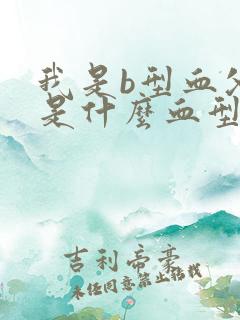 我是b型血父
是什麼血型
吉利帝豪
未经同意禁止转载